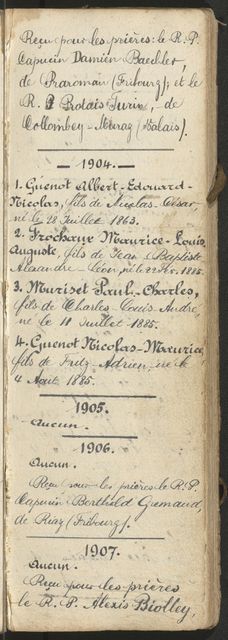 Reçu pour les prières: le R. P.
Capucin Damien Baechler,
de Praroman (Fribourg); et le
R. P. Rotais Turin, de
Collombey-Muraz (Valais).
1904.
1. Guenot Albert-Edouard-
Nicolas, fils de Nicolas-César
né le 28 Juillet 1863.
2. Frochaux Maurice-Louis
Auguste, fils de Jean-Baptiste
Alexandre-Léon, né le 22 1885.
3. Muriset Paul-Charles,
fils de Charles-Louis-André,
né le 11 Juillet 1885.
4. Guenot Nicolas-Maurice,
fils de Fritz-Adrien, né le
4 Août 1885.
1905.
Aucun.
1906.
Aucun.
Reçu pour les prières le R. P.
Capucin Berthold Gremaud,
de Riaz (Fribourg).
1907.
Aucun.
Reçu pour les prières
le R. P. Alexis Biolley,